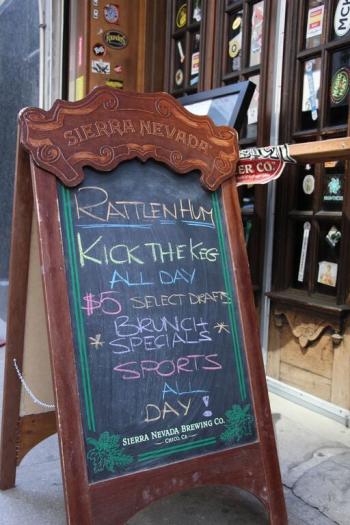 SIERRA NEVADA
RATTLENHUM
KICK THE KEG
ALL DAY
$5 SELECT DRAFTS
* BRUNCH *
SPECIALS
SPORTS
ALL
DAY!
SIERRA NEVADA BREWING CO.
CHICO, CA
ER CO.